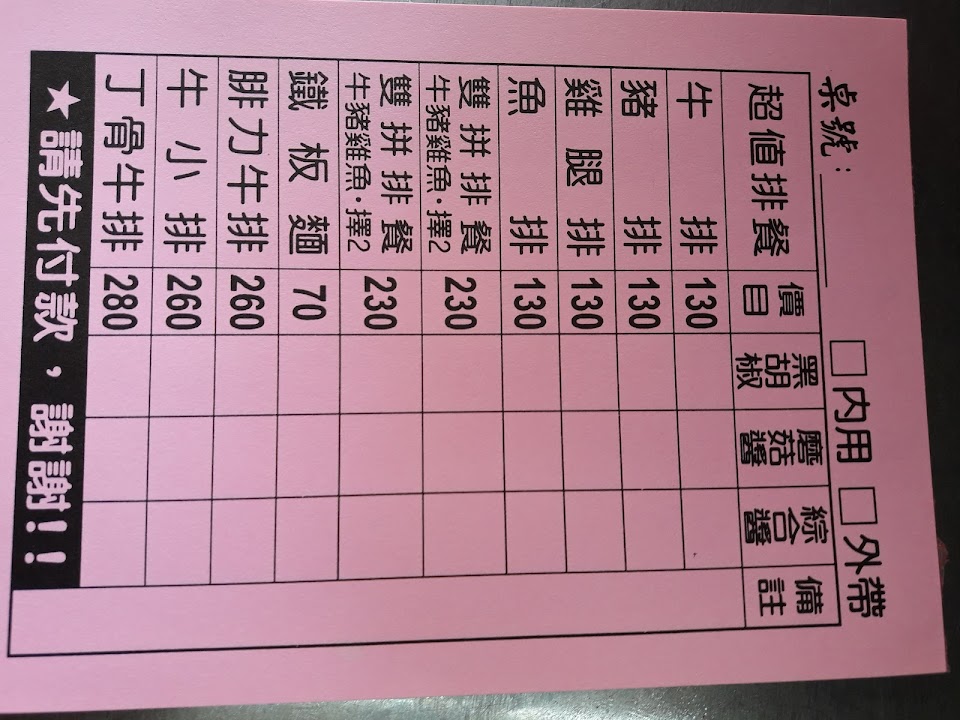 桌號：
□內用 □外帶
超值排餐 價目 黑胡椒 蘑菇醬 綜合醬 備註
牛排 130
豬排 130
雞腿排 130
魚排 130
雙拼排餐 230
牛豬雞魚·擇2
雙拼排餐 230
牛豬雞魚·擇2
鐵板麵 70
腓力牛排 260
牛小排 260
丁骨牛排 280
★請先付款，謝謝!!